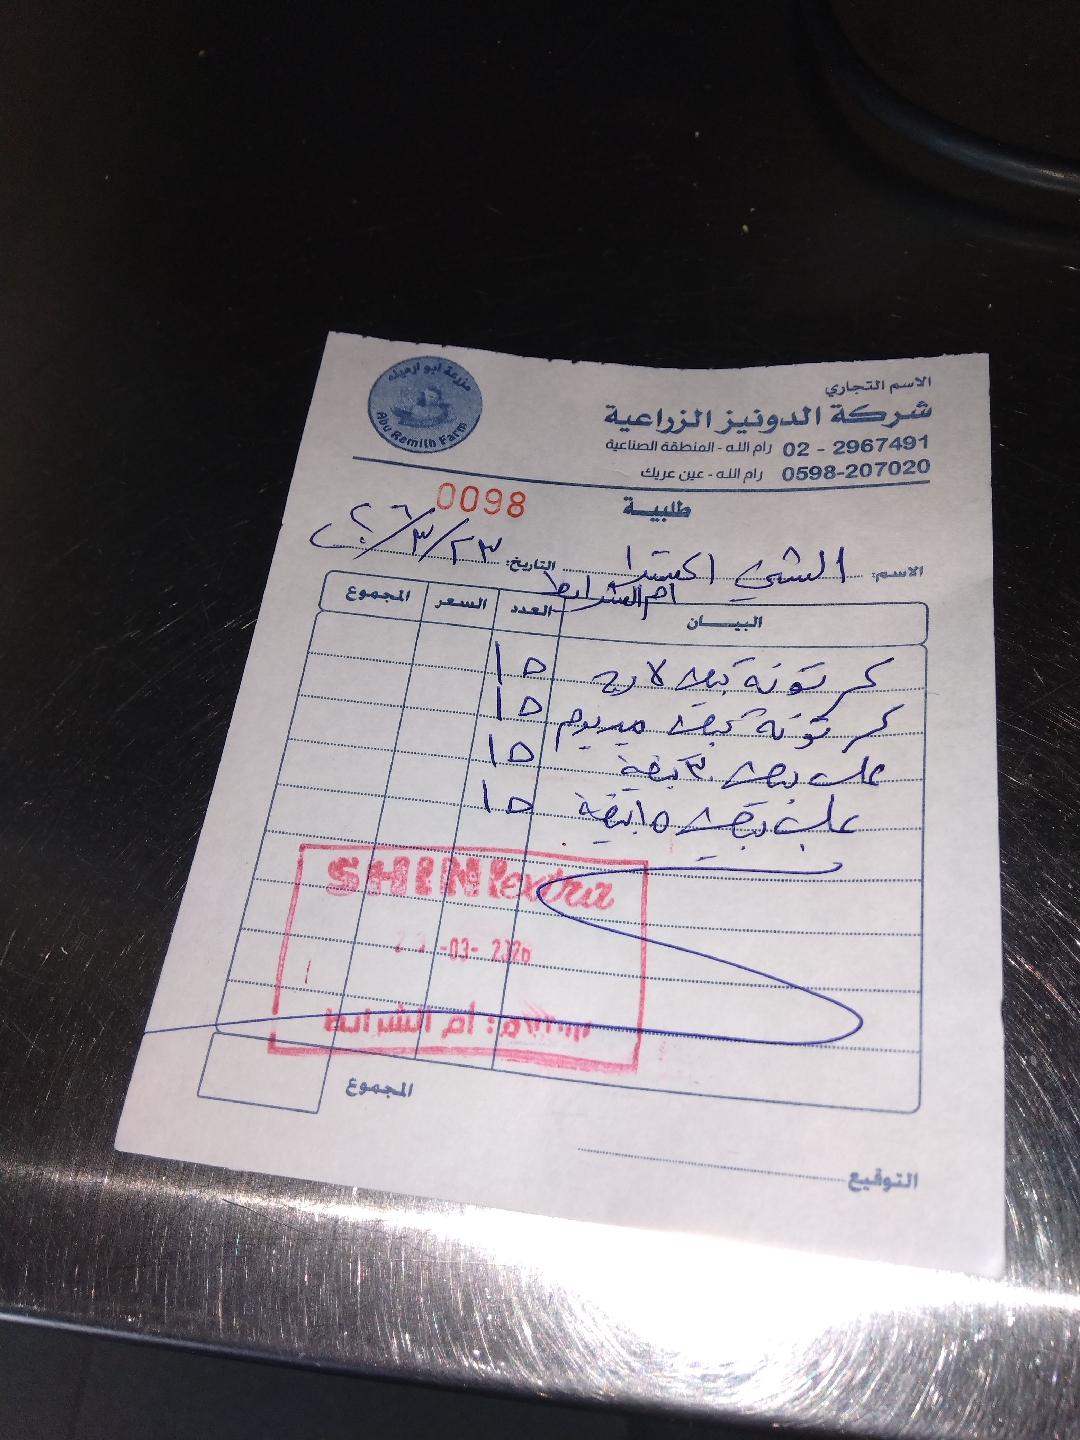 مزرعة أبو ارميله
Abu Remilh Farm
الاسم التجاري
شركة الدونيز الزراعية
02 - 2967491 رام الله - المنطقة الصناعية
0598-207020 رام الله - عين عريك
0098
طلبية
الاسم: الشني اكسترا التاريخ: ٢٣/٣/٢٠٢٦
ام الشرايط
البيـــان العدد السعر المجموع
كرتونة بيض لارج ١٥
كرتونة بيض ميديوم ١٥
علب بيض ٣٠ بيضة ١٥
علب بيض ١٥ بيضة ١٥
SHINI extra
-03- 2026
أم الشرايط
المجموع
التوقيع